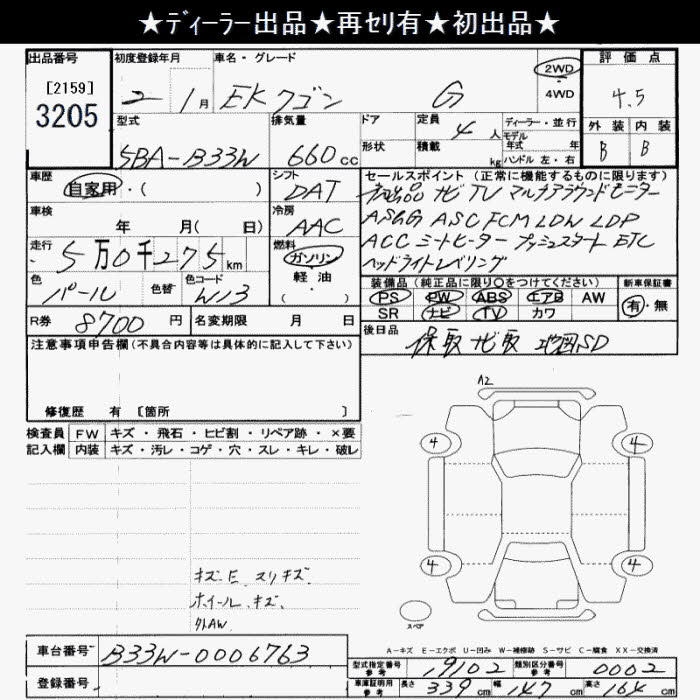 ★ディーラー出品★再セリ有★初出品★
出品番号 初度登録年月 車名・グレード 2WD 評価点
[2159] 3205 2 1月 EKワゴン G 4WD 4.5
型式 排気量 ドア 定員 ディーラー・並行 外装 内装
5BA-B33W 660cc 形状 4人 モデル年式 年 B B
積載 kg ハンドル 左・右
車歴 シフト セールスポイント(正常に機能するものに限ります)
自家用・( ) DAT ナビ TV マルチアラウンドモニター
車検 冷房 ASC FCM LDW LDP
年 月( 日) AAC ACC ミートヒーター プッシュスタート ETC
走行 燃料 ヘッドライトレベリング
5万0千275km ガソリン 装備品(純正品に限り○をつけてください) 新車保証書
色 色替 色コード 軽・油 PS PW ABS エアB AW 有・無
パール W13 ・( ) SR ナビ TV カワ
R券 8700円 名変期限 月 日 後日品
保取 ナビ取 地図SD
注意事項申告欄(不具合内容等は具体的に記入して下さい)
修復歴 有 [箇所 ]
A2
検査員 FW キズ・飛石・ヒビ割・リペア跡・×要
記入欄 内装 キズ・汚レ・コゲ・穴・スレ・キレ・破レ
4 4
4 4
キズE スリキズ
ホイールキズ
社外AW
スペア
A-キズ E-エクボ U-凹み W-補修跡 S-サビ C-腐食 XX-交換済
車台番号 B33W-0006763
型式指定番号 参考 19102 類別区分番号 参考 0002
登録番号 車庫証明用 参考 長さ 339cm 幅 147cm 高さ 164cm